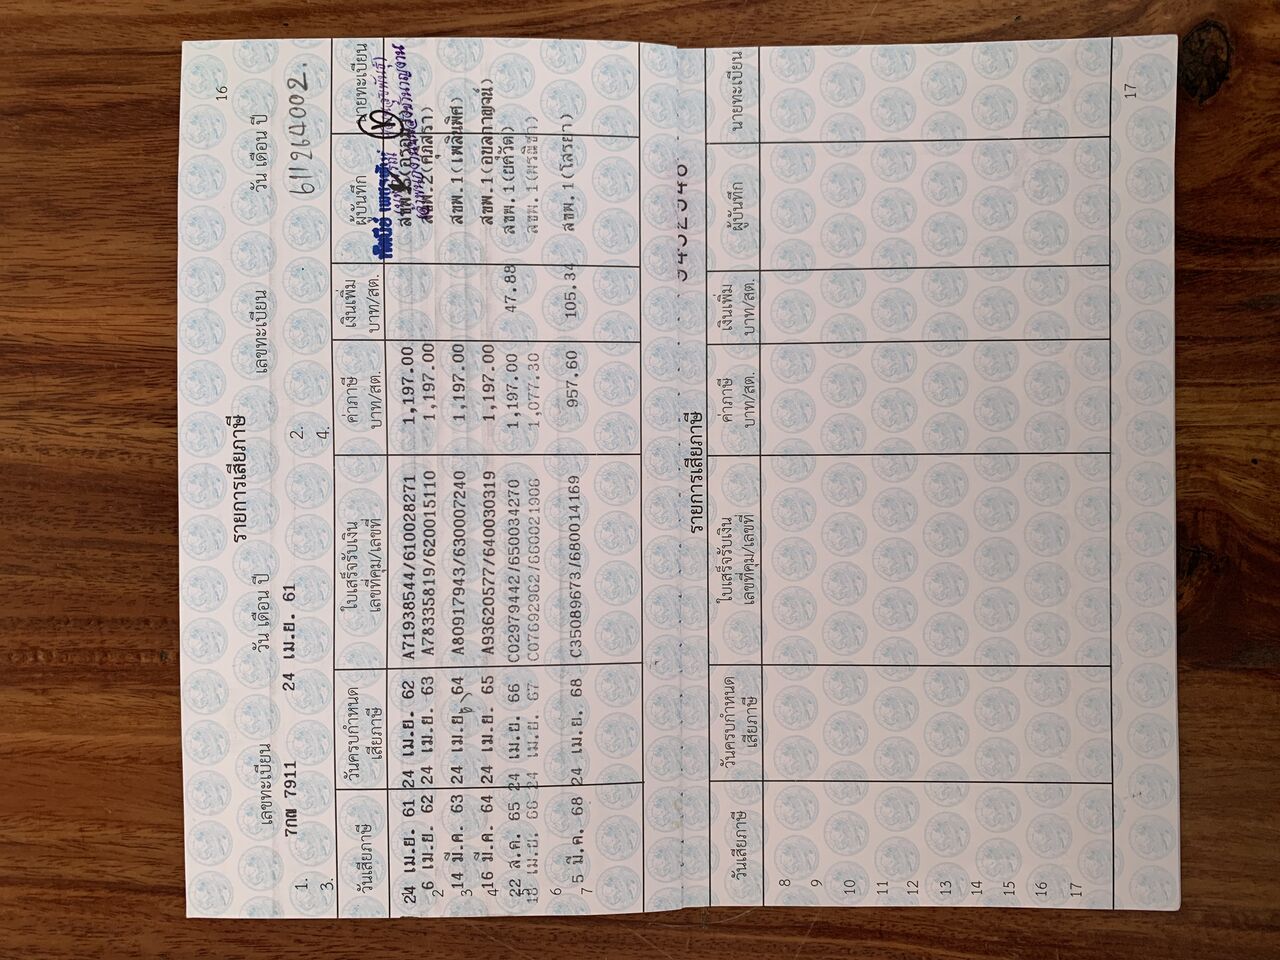 16
รายการเสียภาษี
เลขทะเบียน วัน เดือน ปี เลขทะเบียน วัน เดือน ปี
1. 7กฒ 7911 24 เม.ย. 61 2. 611264002.
3. 4.
วันเสียภาษี วันครบกำหนด เสียภาษี ใบเสร็จรับเงิน เลขที่คุม/เลขที่ ค่าภาษี บาท/สต. เงินเพิ่ม บาท/สต. ผู้บันทึก นายทะเบียน
24 เม.ย. 61 24 เม.ย. 62 A71938544/610028271 1,197.00
2 6 เม.ย. 62 24 เม.ย. 63 A78335819/620015110 1,197.00 สขพ.2(ศุภสิรา)
3 14 มี.ค. 63 24 เม.ย. 64 A80917943/630007240 1,197.00 สขพ.1(เพลินพิศ)
4 16 มี.ค. 64 24 เม.ย. 65 A93620577/640030319 1,197.00 สขพ.1(อุบลกาญจน์)
22 ส.ค. 65 24 เม.ย. 66 C02979442/650034270 1,197.00 47.88 สขพ.1(ยศวัด)
18 เม.ย. 66 24 เม.ย. 67 C07692962/660021906 1,077.30
6
7 5 มี.ค. 68 24 เม.ย. 68 C35089673/680014169 957.60 105.34 สขพ.1(โสรยา)
รายการเสียภาษี
วันเสียภาษี วันครบกำหนด เสียภาษี ใบเสร็จรับเงิน เลขที่คุม/เลขที่ ค่าภาษี บาท/สต. เงินเพิ่ม บาท/สต. ผู้บันทึก นายทะเบียน
8
9
10
11
12
13
14
15
16
17
17